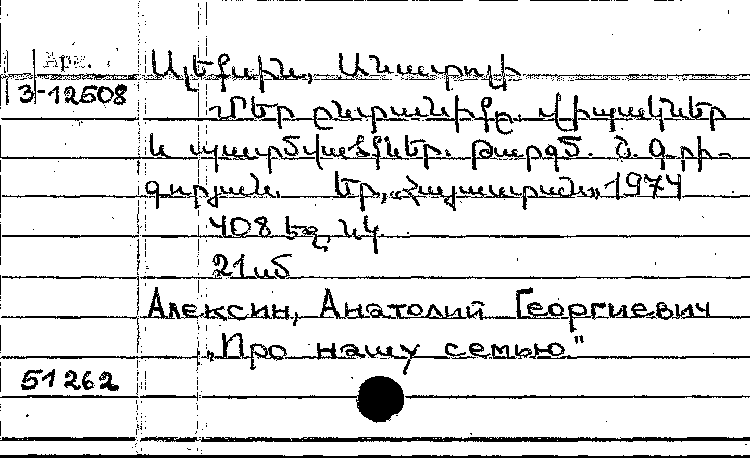 Арм.
3-12508
Ալեքսին, Անատոլի
Մեր ընտանիքը. վիպակներ
և պատմվածքներ. թարգմ. Ն. Գրի-
գորյան. Եր., «Հայաստան» 1974
408 եջ, նկ
21սմ
Алексин, Анатолий Георгиевич
„Про нашу семью"
51262